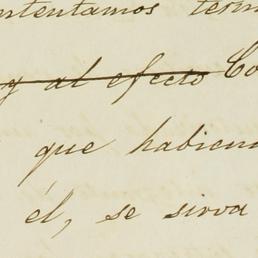 ntentamos term
y al efecto Co
que habien
él, se sirva